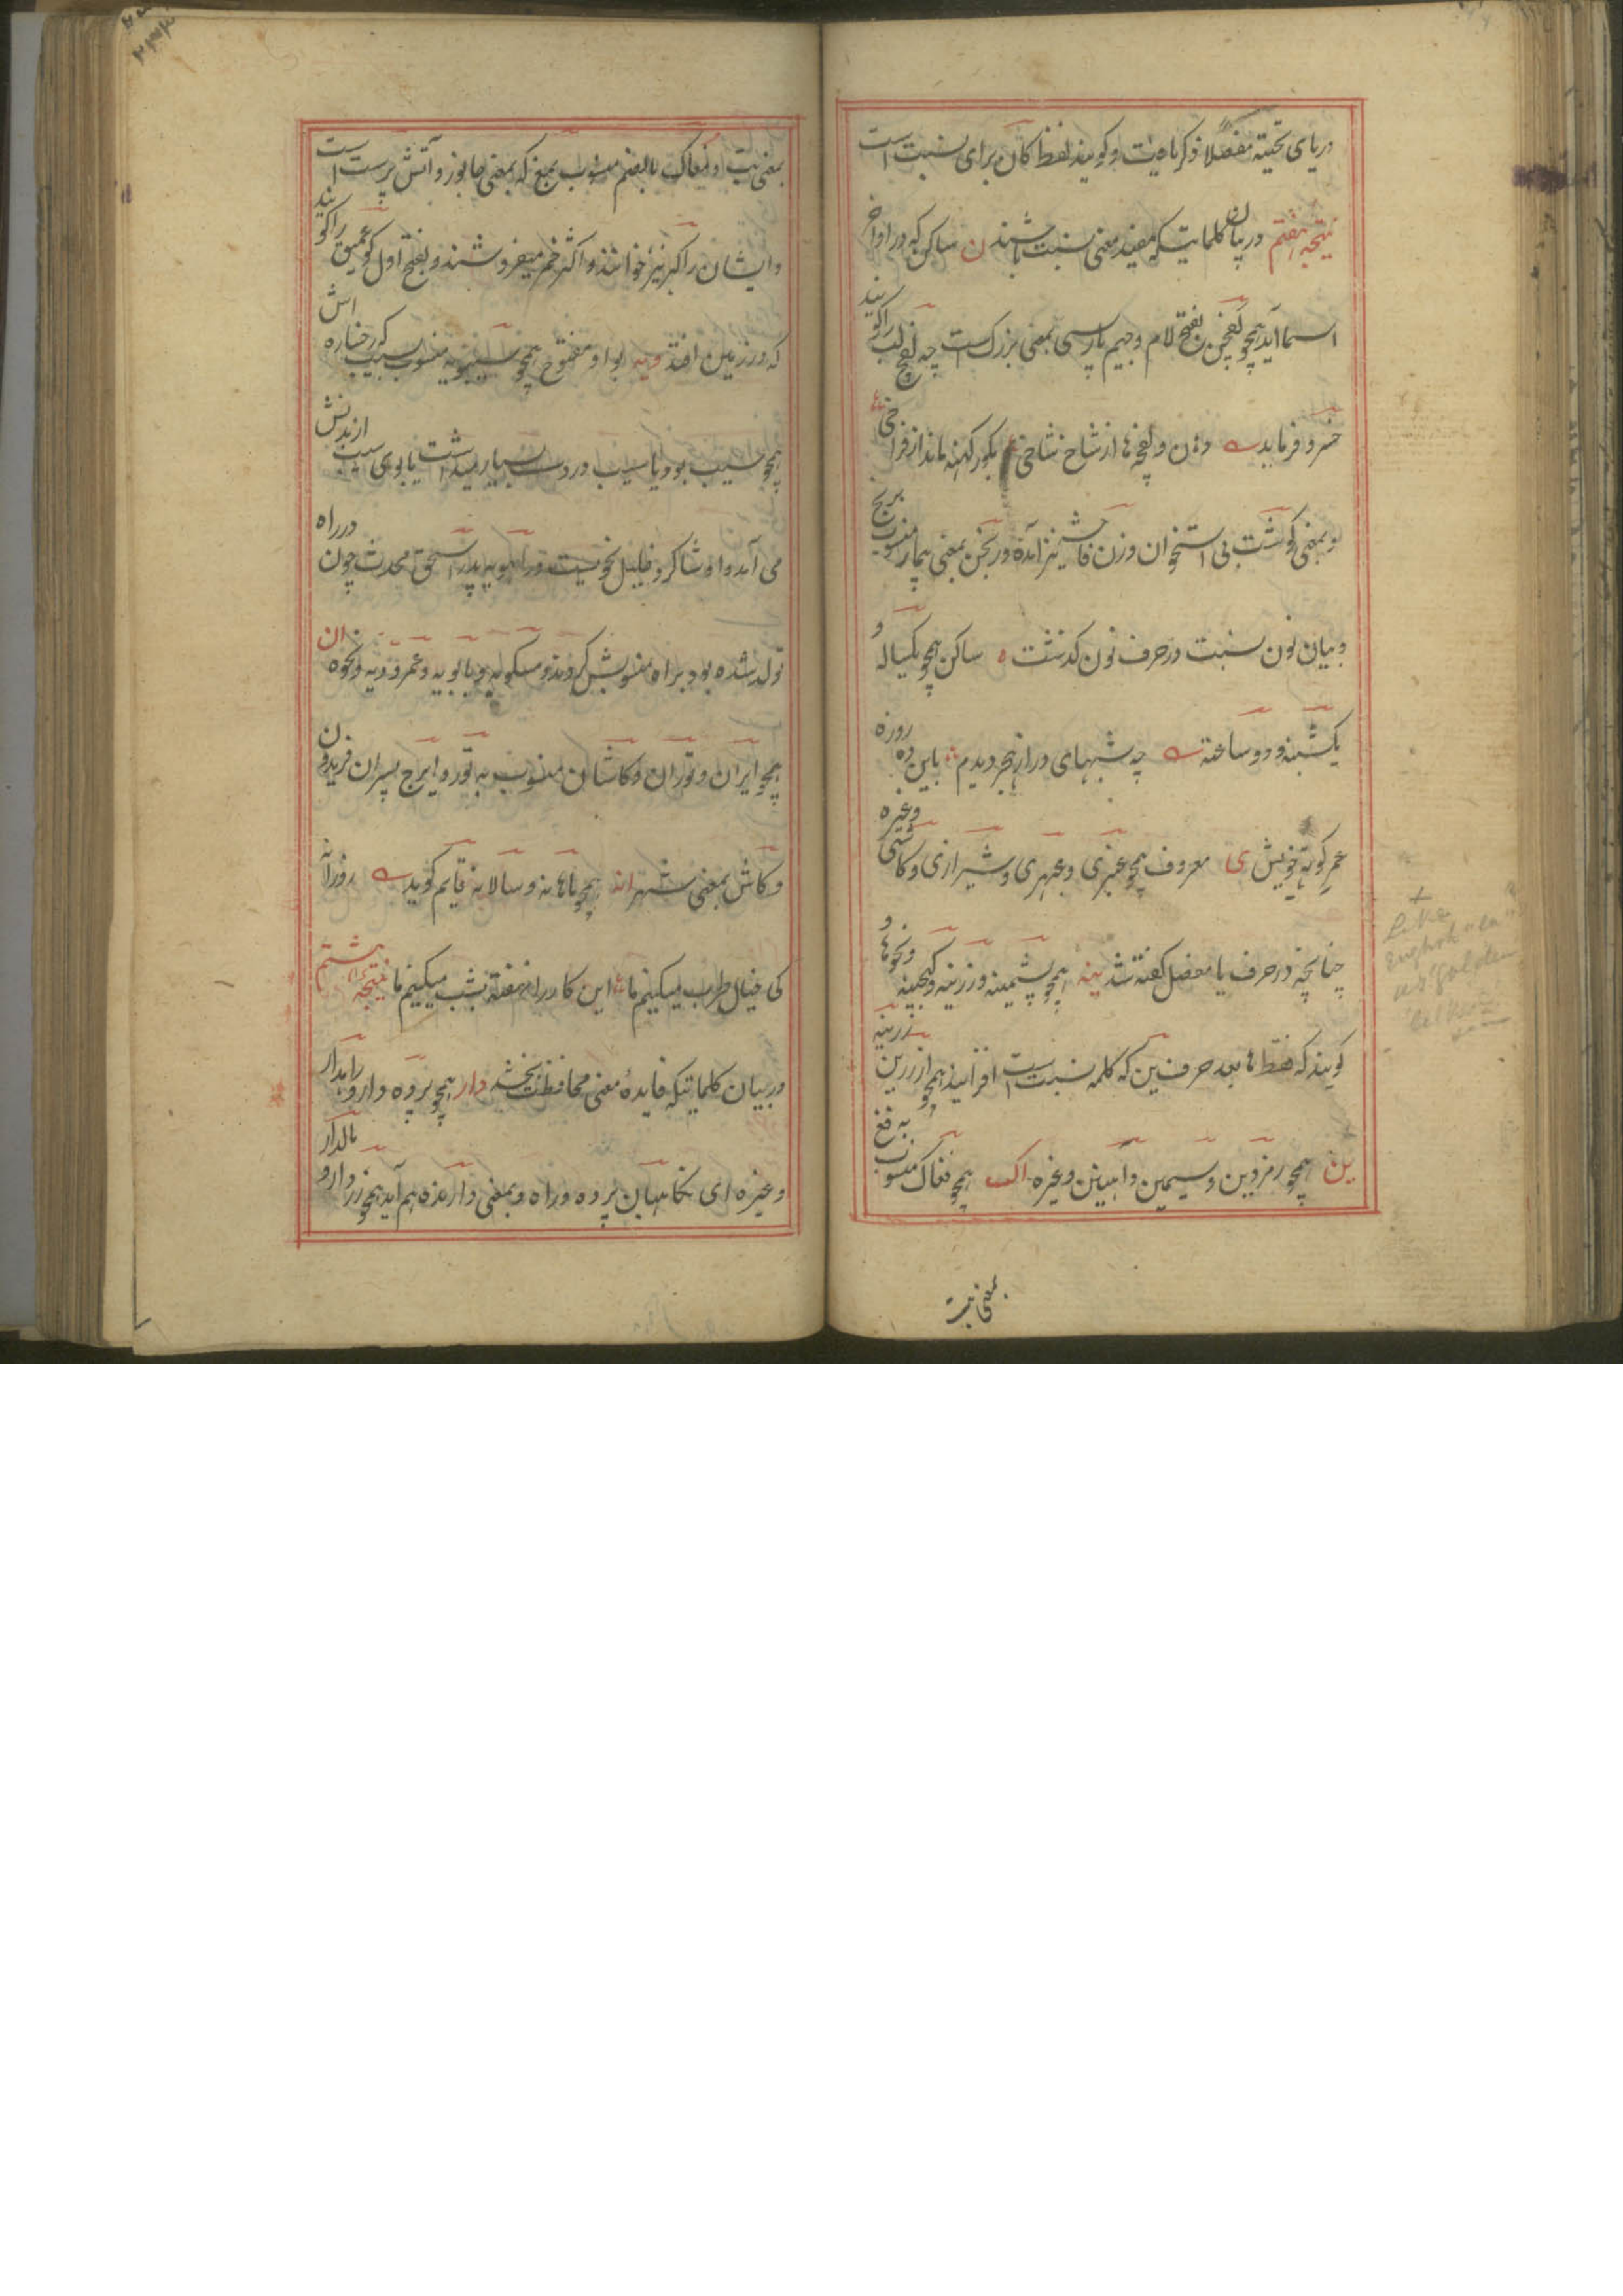 دریای تحتیه مفصلا ذکر یافت و گویند لفظ کان برای نسبت است
نتیجه هفتم در بیان کلماتیکه مفید معنی نسبت باشند ن ساکن که در اواخر
اسما آید همچو لفچن بفتح لام و جیم پارسی بمعنی بزرگ لب است چه لفچ لب را گویند
خسرو فرماید دهن و لفچه ها از شاخ شاخی بگور کهنه ماند از فراخی
و بمعنی گوشت بی استخوان و زن فاحشه نیز آمده و رنجن بمعنی بیمار منسوب برنج
و بیان نون نسبت در حرف نون گذشت ه ساکن همچو یکساله و
یکشبه و دو ساخته چه شبهای دراز هجر دیدم باین ده روزه
عمر کوته خویش ی معروف همچو عنبری و عبهری و شیرازی و کاشی و غیره
چنانچه در حرف یا مفصل گفته شد ینه همچو پشمینه و زرینه و گنجینه و نحوها و
گویند که فقط ها بعد حرف ین که کلمه نسبت است افزایند همچو از زرین زرینه
ین همچو رمزدین و سیمین و آهنین و غیره اک همچو فغاک منسوب به فغ
بمعنی بت
بمعنی بت است و مغاک بالضم منسوب بمغ که بمعنی جانور و آتش پرست است
و ایشان را گبر نیز خوانند و اکثر خم میفروشند و بفتح اول گو عمیق را گویند
که در زمین افتد ویه بواو مفتوح همچو سیبویه منسوب بسیب که رخساره اش
همچو سیب بود یا سیب در دست بسیار میداشت یا بوی سیب از بدنش
می آمد و او شاگرد خلیل نحویست و راهویه پدر اسحق محدث چون در راه
تولد شده بود براه منسوبش کردند و مسکویه و بابویه و عمرویه و نحوه ان
همچو ایران و توران و کاشان منسوب به تور و ایرج پسران فریدون
و کاش بمعنی شهر انه همچو ماهانه و سالانه قایم گوید روزانه
کی خیال طرب میکنیم ما این کار را نهفته بشب میکنیم ما نتیجه هشتم
در بیان کلماتیکه فایده معنی محافظت بخشد دار همچو پرده دار و راهدار
و غیره ای نگاهبان پرده و راه و بمعنی دارنده هم آید همچو زردار و مالدار
Like
English "en"
as "golden"